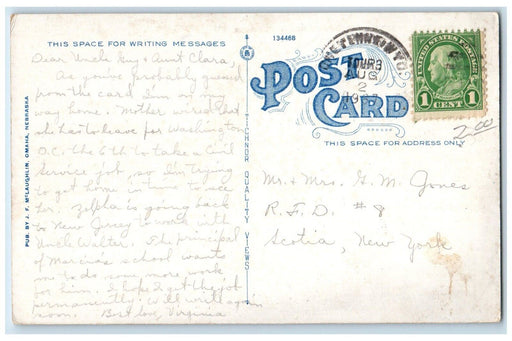 THIS SPACE FOR WRITING MESSAGES
134468
POST CARD
TOURS
AUG
2
UNITED STATES POSTAGE
1 1
CENT
2.00
THIS SPACE FOR ADDRESS ONLY
PUB. BY J. F. McLAUGHLIN, OMAHA, NEBRASKA
TICHNOR QUALITY VIEWS
Dear Uncle Guy + Aunt Clara,
you've probably guessed
from the card I'm on my
way home. Mother wired that
she has to leave for Washington
D.C. the 6th to take a Civil
Service job, so I'm trying
to get home in time to see
her. is going back
to New Jersey to work with
Uncle Walter. The principal
of Marcia's school wants
me to do some more work
for him. I hope I get the job
permanently. Will write again
soon. Best love, Virginia
Mr. + Mrs. G. M. Jones
R.F.D. #8
Scotia, New York